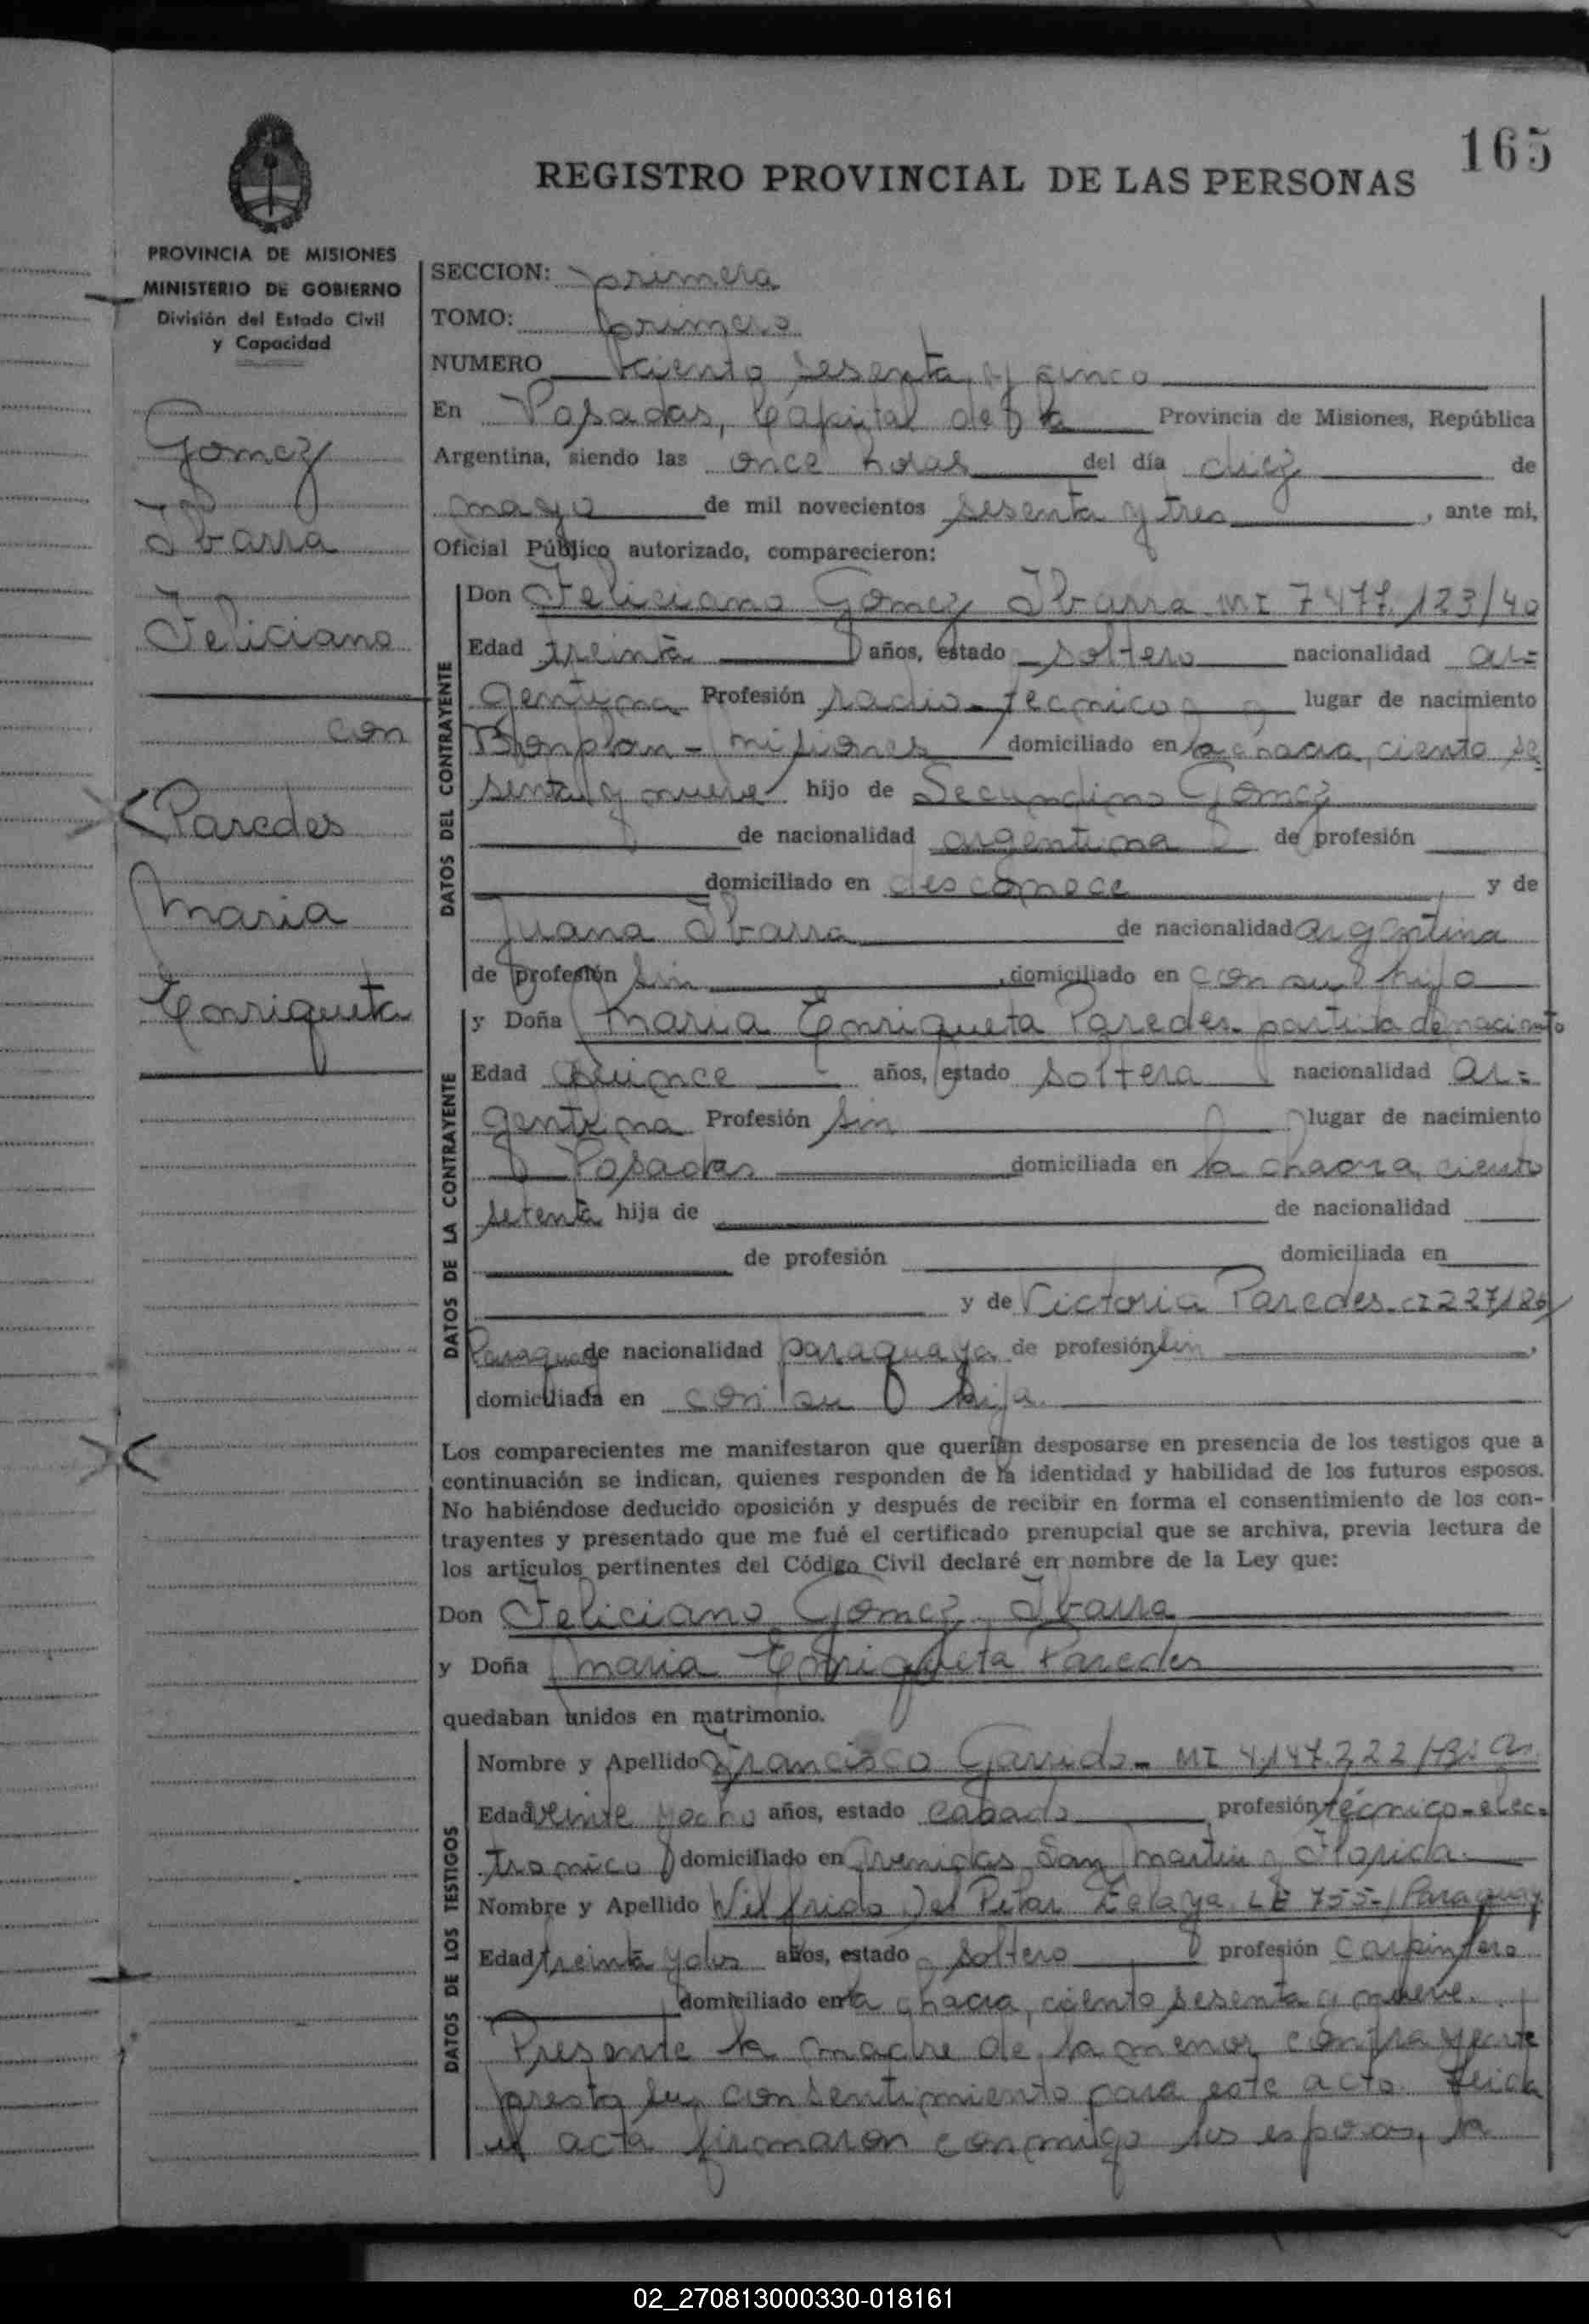 165
REGISTRO PROVINCIAL DE LAS PERSONAS
PROVINCIA DE MISIONES
MINISTERIO DE GOBIERNO
División del Estado Civil
y Capacidad
Gomez
Ibarra
Feliciano
con
Paredes
Maria
Enriqueta
SECCION: primera
TOMO: primero
NUMERO ciento sesenta y cinco
En Posadas, Capital de la Provincia de Misiones, República
Argentina, siendo las once horas del día diez de
mayo de mil novecientos sesenta y tres, ante mi,
Oficial Público autorizado, comparecieron:
DATOS DEL CONTRAYENTE
Don Feliciano Gomez Ibarra MI 7477.123/40
Edad treinta años, estado soltero nacionalidad ar=
gentina Profesión radio-tecnico lugar de nacimiento
Bonplan - misiones domiciliado en la chacra, ciento se
senta y nueve hijo de Secundino Gomez
de nacionalidad argentina de profesión
domiciliado en desconoce, y de
Juana Ibarra de nacionalidad argentina
de profesión sin, domiciliado en con su hijo
DATOS DE LA CONTRAYENTE
y Doña Maria Enriqueta Paredes- partida de
Edad quince años, estado soltera nacionalidad ar=
gentina Profesión sin lugar de nacimiento
Posadas domiciliada en la chacra, ciento
setenta hija de de nacionalidad
de profesión domiciliada en
y de Victoria Paredes- CI 227186/
Paraguay de nacionalidad paraguaya de profesión sin,
domiciliada en con su hija.
Los comparecientes me manifestaron que querían desposarse en presencia de los testigos que a
continuación se indican, quienes responden de la identidad y habilidad de los futuros esposos.
No habiéndose deducido oposición y después de recibir en forma el consentimiento de los con-
trayentes y presentado que me fué el certificado prenupcial que se archiva, previa lectura de
los artículos pertinentes del Código Civil declaré en nombre de la Ley que:
Don Feliciano Gomez Ibarra
y Doña Maria Enriqueta Paredes
quedaban unidos en matrimonio.
DATOS DE LOS TESTIGOS
Nombre y Apellido Francisco Garrido- MI 4.147.222/Bs As
Edad veinte y ocho años, estado casado profesión técnico-elec=
tronico domiciliado en Avenidas San Martin y Florida.
Nombre y Apellido Wilfrido Del Pilar Zelaya LE 755-/Paraguay
Edad treinta y dos años, estado soltero profesión carpintero
domiciliado en la chacra, ciento sesenta y nueve.
Presente la madre de la menor contrayente
presta su consentimiento para este acto. Leida
el acta firmaron conmigo los esposos, la
02_270813000330-018161